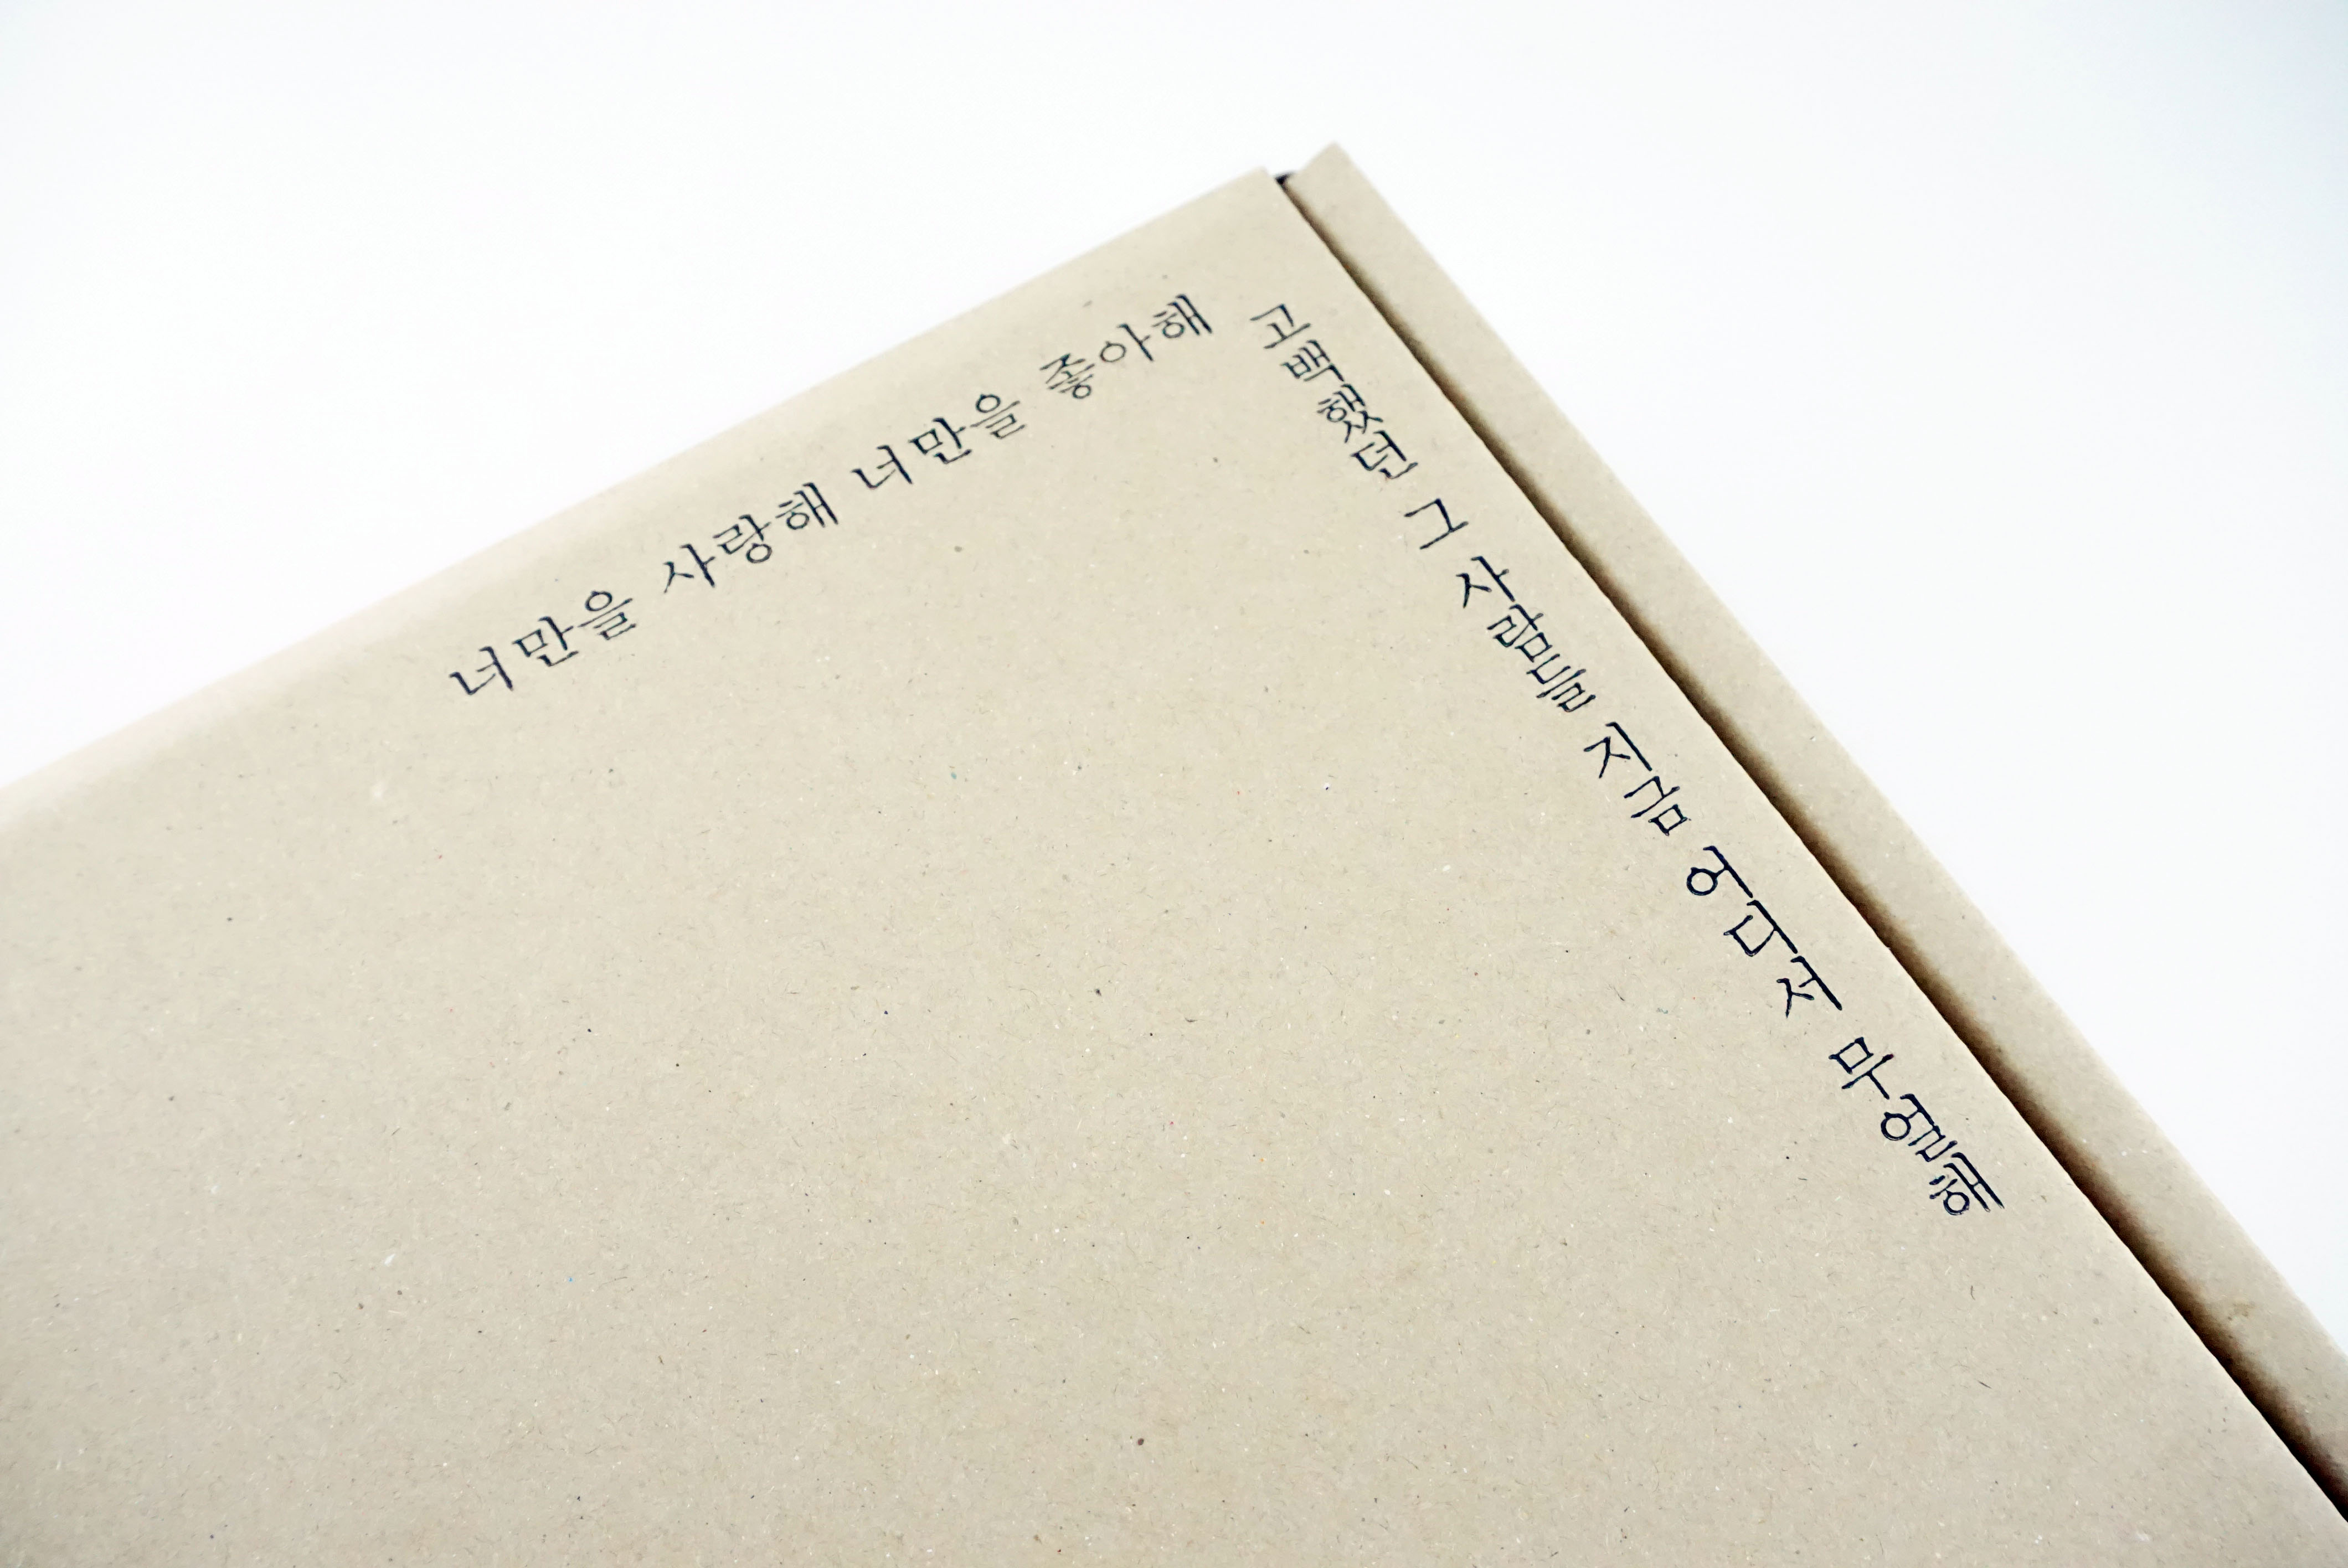 너만을 사랑해 너만을 좋아해
고백했던 그 사람들 지금 어디서 무얼해